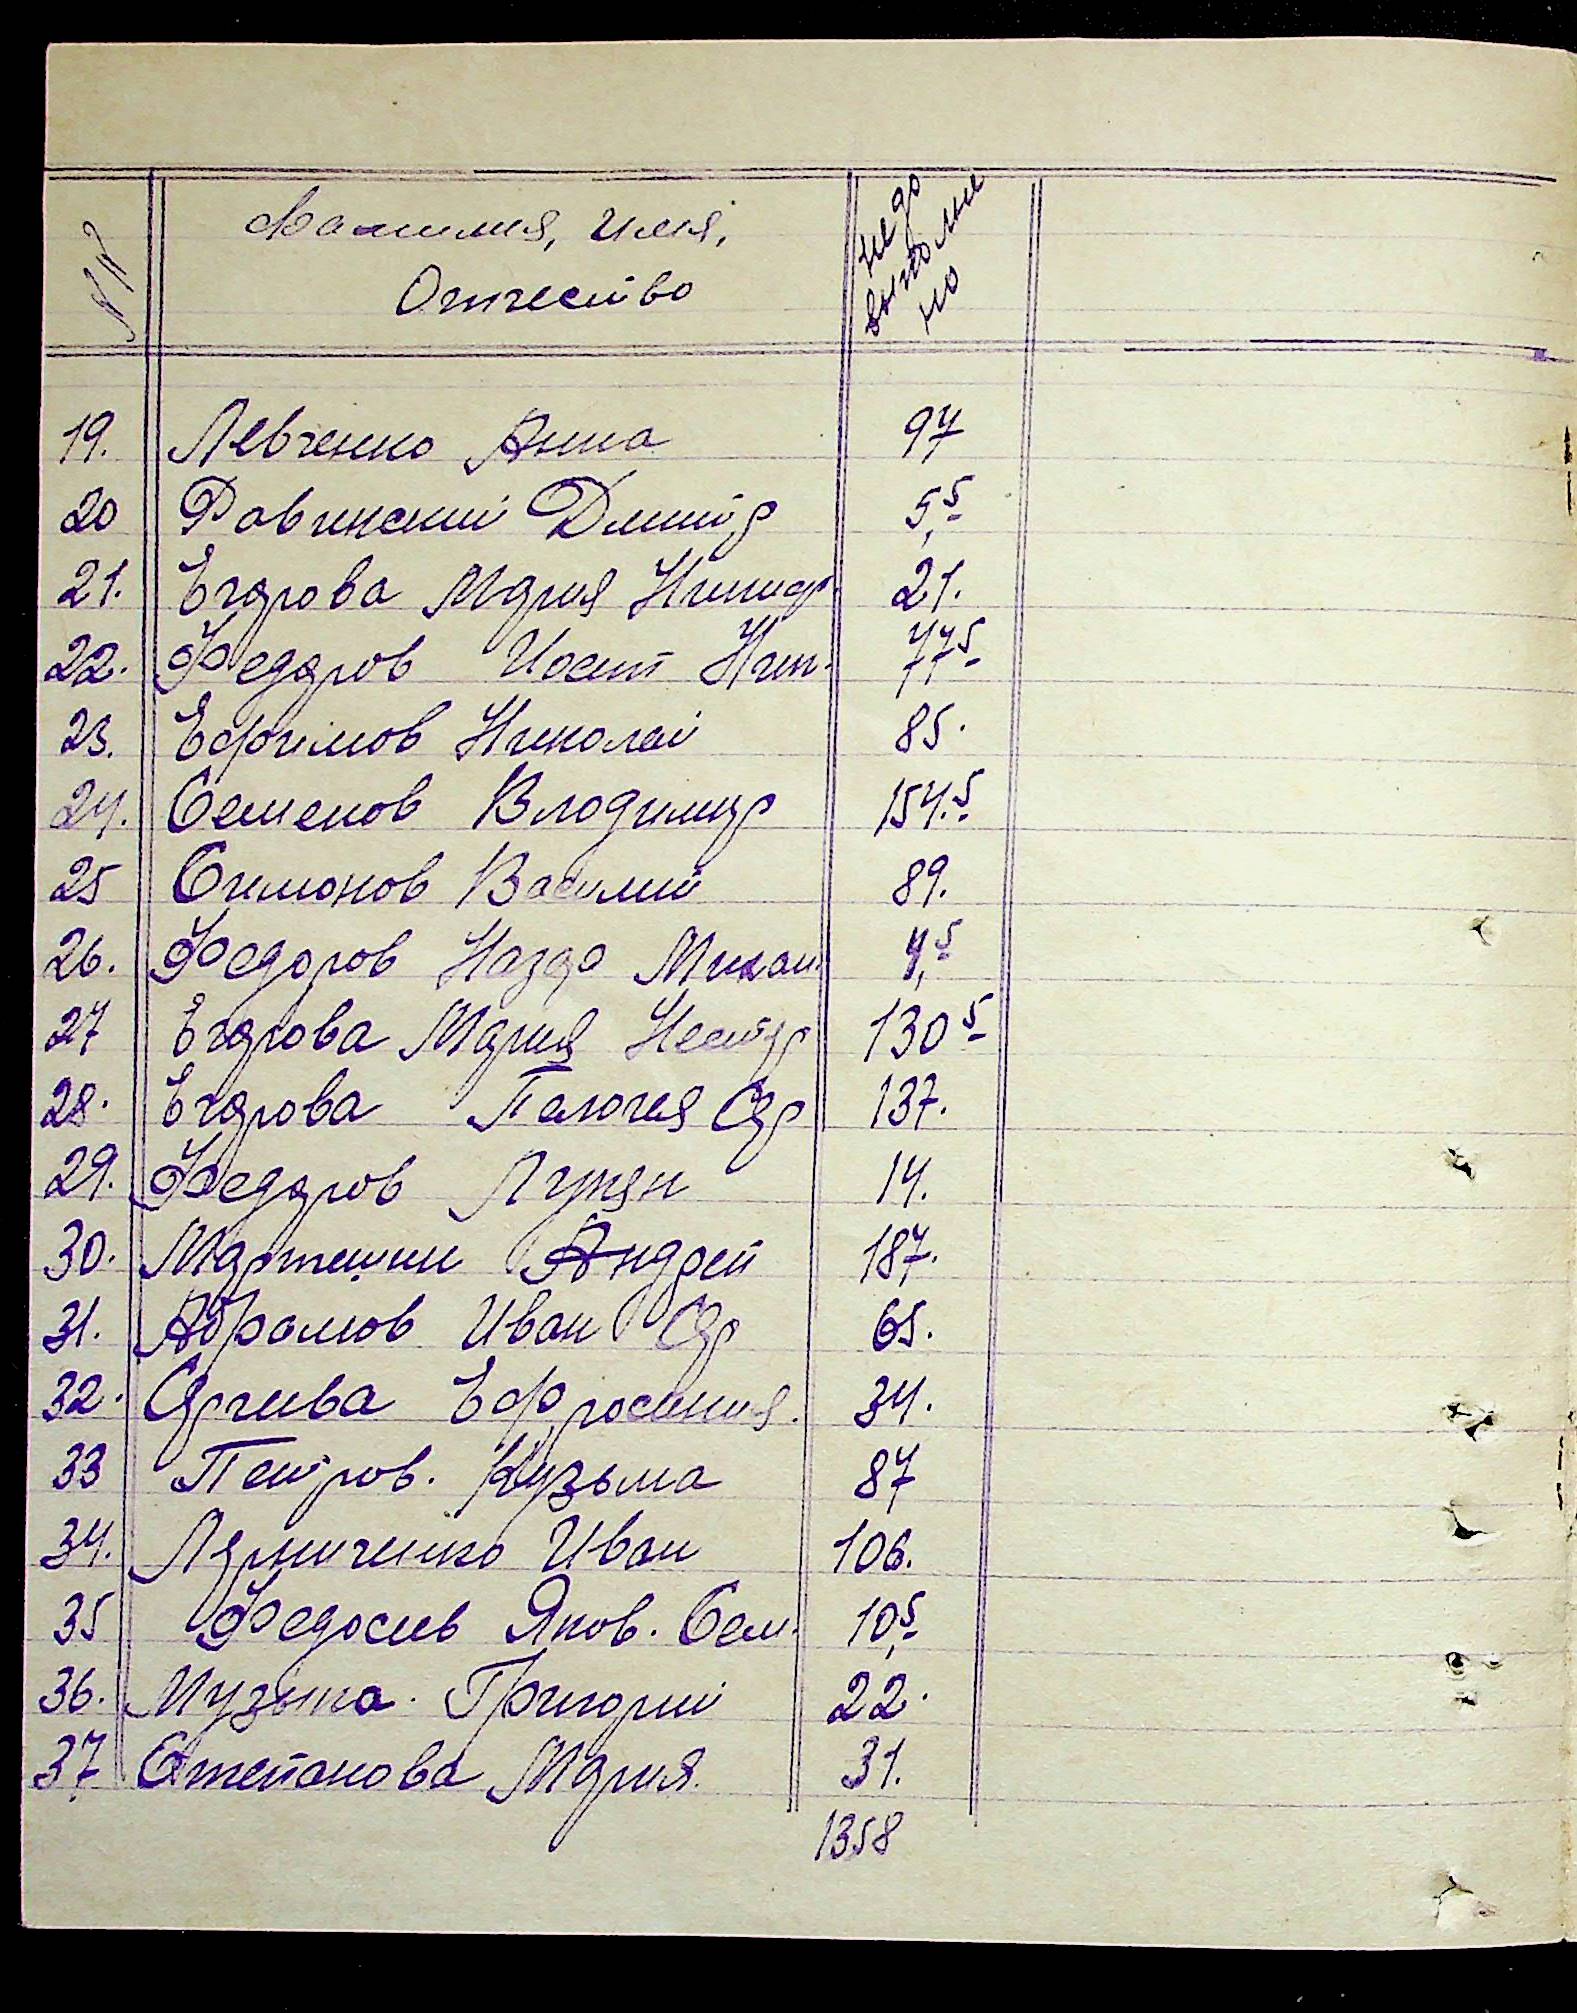 № п/п Фамилия, Имя, Отчество недо выполне но
19. Левченко Анна 97
20 Равинский Дмитр 5,5
21. Егорова Мария Никиф. 21.
22. Федоров Иосип Ник. 77 5
23. Ефимов Николай 85.
24. Семенов Владимир 154.5
25 Симонов Василий 89.
26. Федоров Назар Михаи. 4,5
27 Егорова Мария Нестор 130 5
28. Егорова Пелогия Сер 137.
29. Федоров Лукян 14.
30. Мартешин Андрей 187.
31. Абрамов Иван Сер 65.
32. Сергива Ефросиния. 34.
33 Петров. Кузьма 87
34. Лярниченко Иван 106.
35 Федосев Яков. Сем. 10,5
36. Музыка. Григорий 22.
37 Степанова Мария. 31.
1358